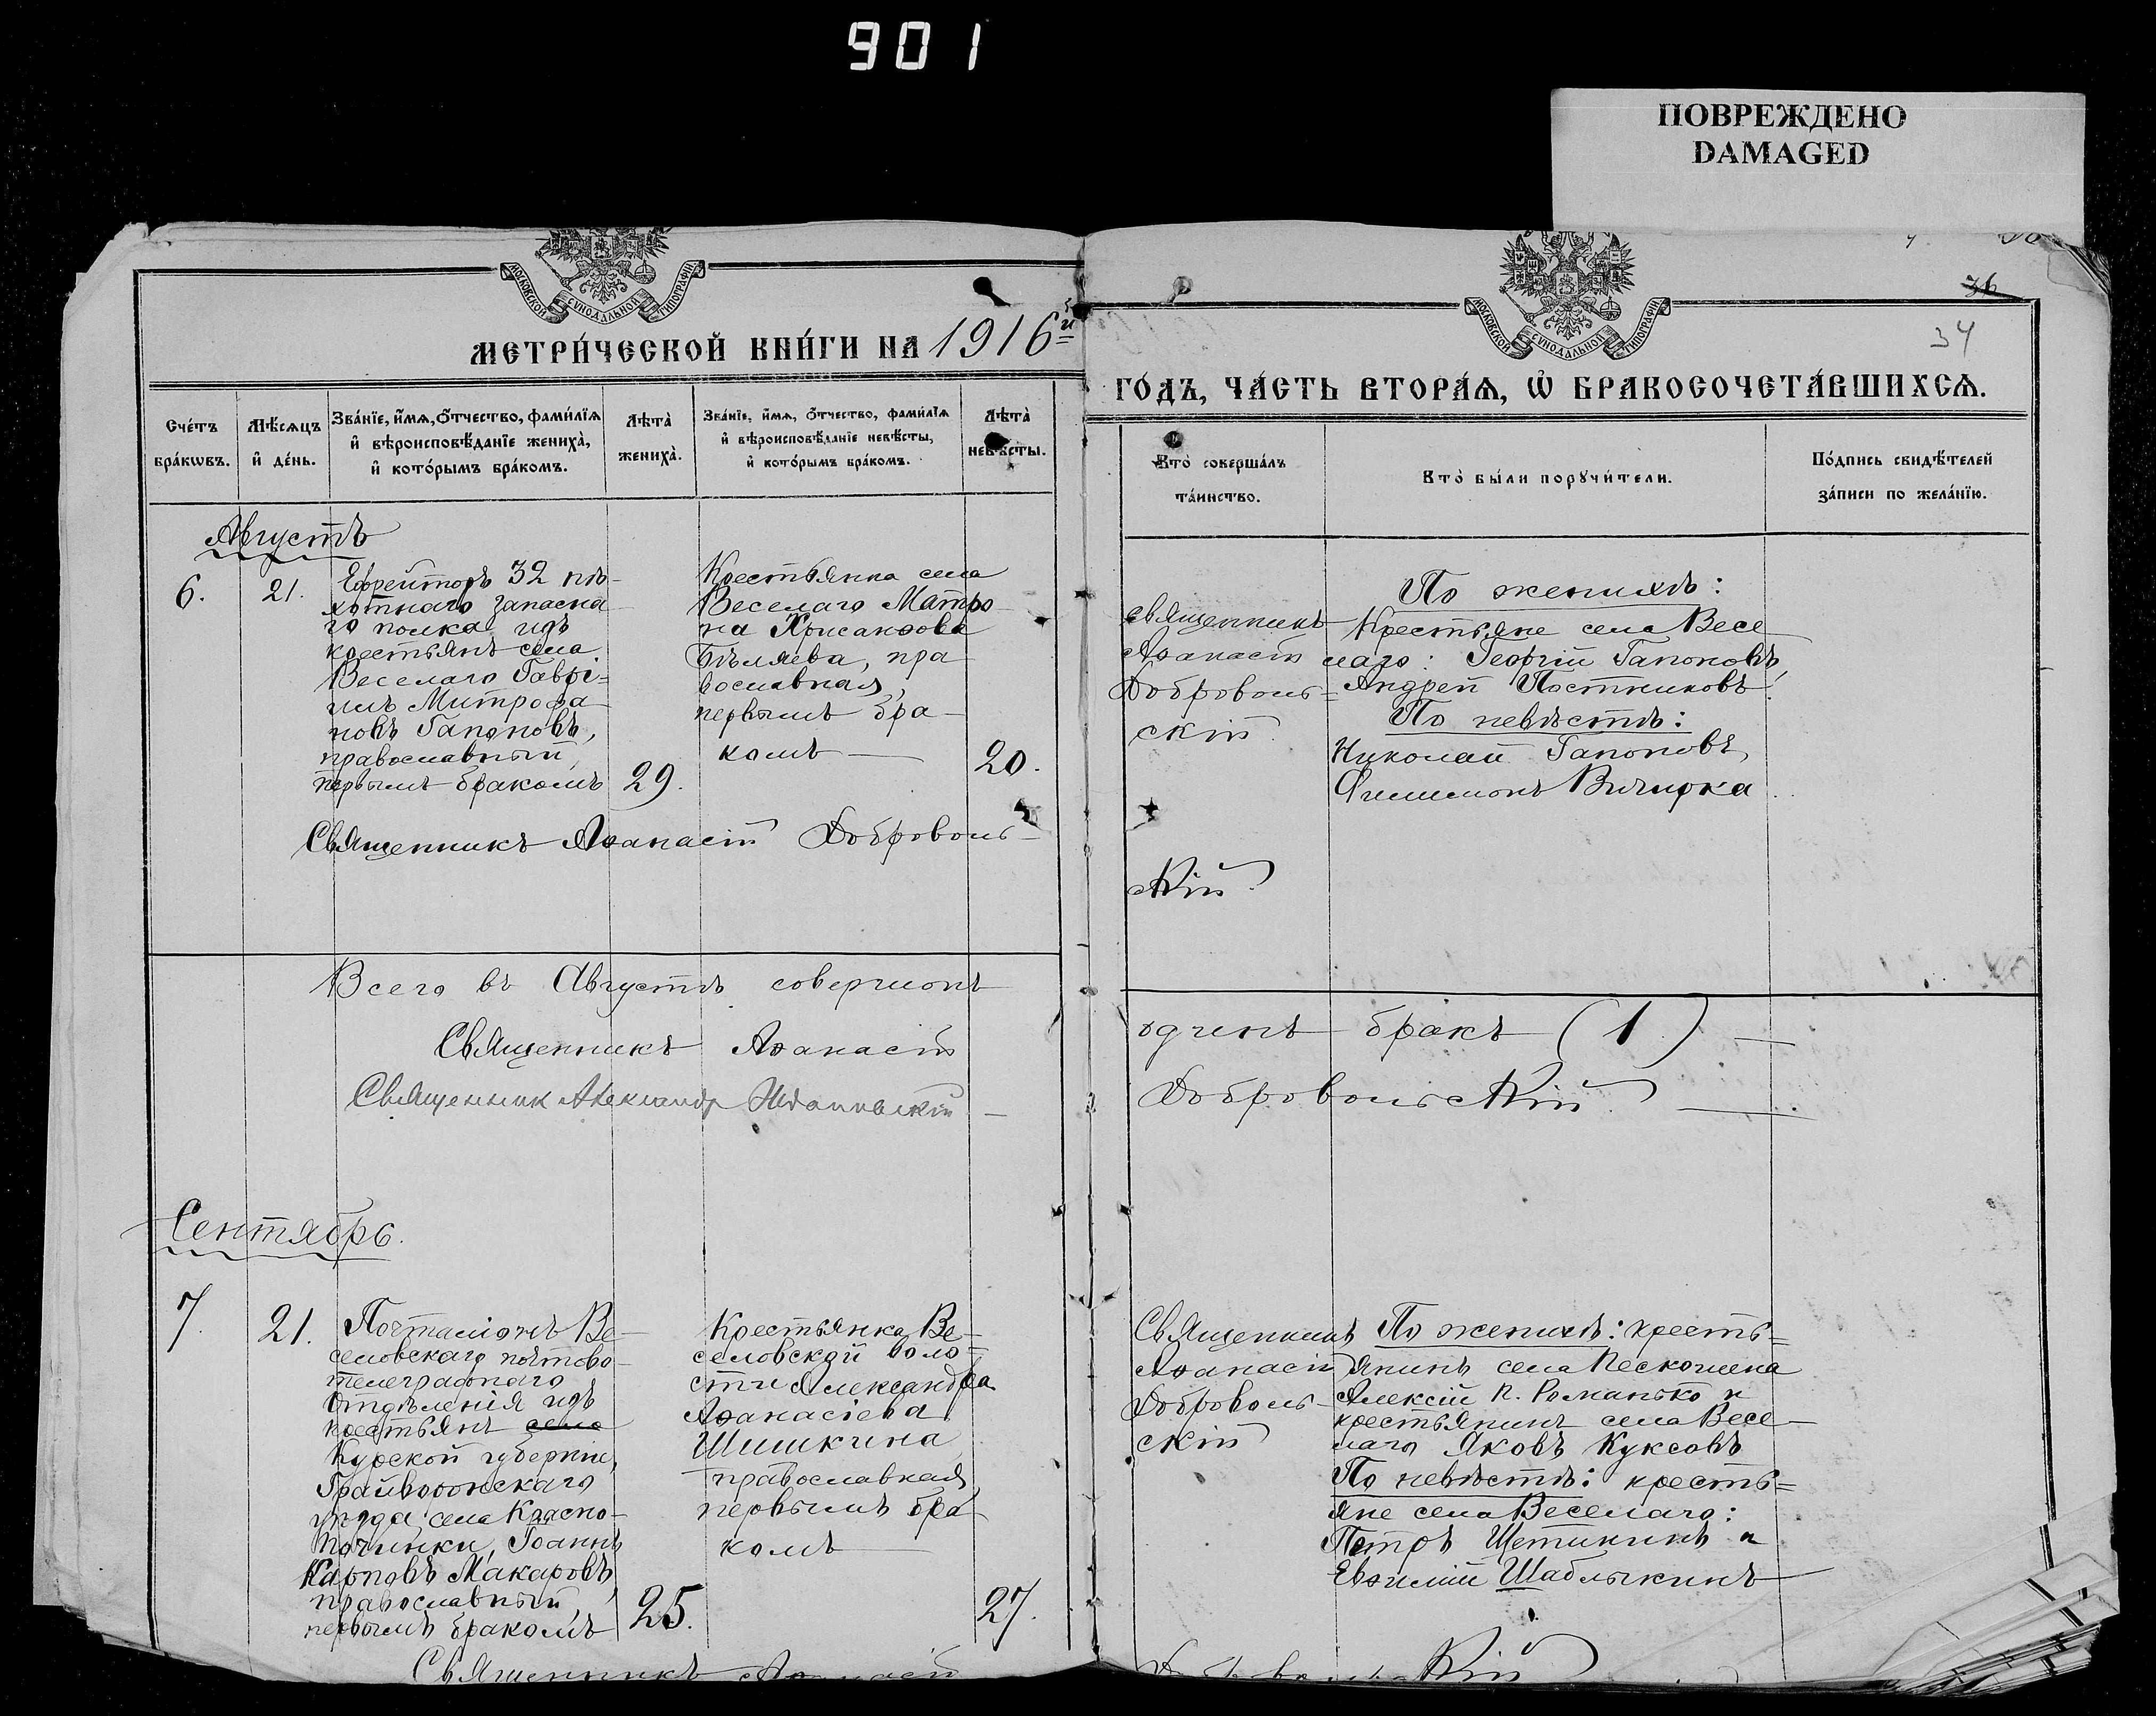 901
ПОВРЕЖДЕНО
DAMAGED
МОСКОВСКОЙ СѴНОДАЛЬНОЙ ТИПОГРАФІИ.
МОСКОВСКОЙ СѴНОДАЛЬНОЙ ТИПОГРАФІИ.
36
34
МЕТРИ́ЧЕСКОЙ КНИ́ГИ НА 1916й
ГО́ДЪ, ЧА́СТЬ ВТОРА́Ѧ, Ѡ҆ БРАКОСОЧЕТА́ВШИХСѦ.
Сче́тъ бра́кѡвъ.
Мѣ́сѧцъ и҆ де́нь.
Зва́нїе, и҆́мѧ, ѻ҆́тчество, фами́лїѧ
и҆ вѣроисповѣ́данїе жениха̀,
и҆ кото́рымъ бра́комъ.
Лѣта̀ жениха̀.
Зва́нїе, и҆́мѧ, ѻ҆́тчество, фами́лїѧ
и҆ вѣроисповѣ́данїе невѣ́сты,
и҆ кото́рымъ бра́комъ.
Лѣта̀ невѣ́сты.
Кто̀ соверша́лъ
та́инство.
Кто̀ бы́ли порꙋчи́тели.
По́дпись свидѣ́телей
за́писи по жела́нїю.
Августъ
6.
21.
Ефрейторъ 32 пѣ-
хотнаго запасна-
го полка изъ
крестьянъ села
Веселаго Гаврі=
илъ Митрофа-
новъ Гапоновъ,
православный,
первымъ бракомъ
29.
Крестьянка села
Веселаго Матро-
на Хрисанѳова
Бѣляева, пра-
вославная,
первымъ бра-
комъ —
20.
Священникъ
Аѳанасій
Доброволь-
скій
По женихѣ:
Крестьяне села Весе-
лаго: Георгій Гапоновъ,
Андрей Постниковъ.
По невѣстѣ:
Николай Гапоновъ,
Филимонъ
Священникъ Аѳанасій Доброволь-
скій.
Всего въ Августѣ совершонъ
одинъ бракъ (1) —
Священникъ Аѳанасій
Добровольскій. —
Священник Александр
Сентябрь.
7.
21.
Почталіонъ Ве-
селовскаго почтово-
телеграфнаго
отдѣленія изъ
крестьянъ села
Курской губерніи,
Грайворонскаго
уѣзда села Красно-
Починки, Іоаннъ
Карповъ Макаровъ,
православный,
первымъ бракомъ
25.
Крестьянка Ве-
селовской воло=
сти Александра
Аѳанасіева
Шишкина
православная,
первымъ бра-
комъ —
27.
Священникъ
Аѳанасій
Доброволь-
скій
По женихѣ: кресть=
янинъ села Пескошина
Алексій П. Романько и
крестьянинъ села Весе-
лаго Яковъ Куксовъ
По невѣстѣ: кресть=
яне села Веселаго:
Петръ Щетининъ и
Евѳимій Шаблыкинъ
Священникъ Аѳанасій
Добровольскій